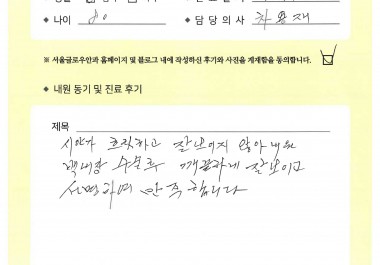 • 나이 80 • 담당의사 차용재
※ 서울글로우안과 홈페이지 및 블로그 내에 작성하신 후기와 사진을 게재함을 동의합니다. ☑
• 내원 동기 및 진료 후기
제목
시야가 흐릿하고 잘보이지 않아 내원
백내장 수술후 깨끗하게 잘보이고
선명하며 만족합니다